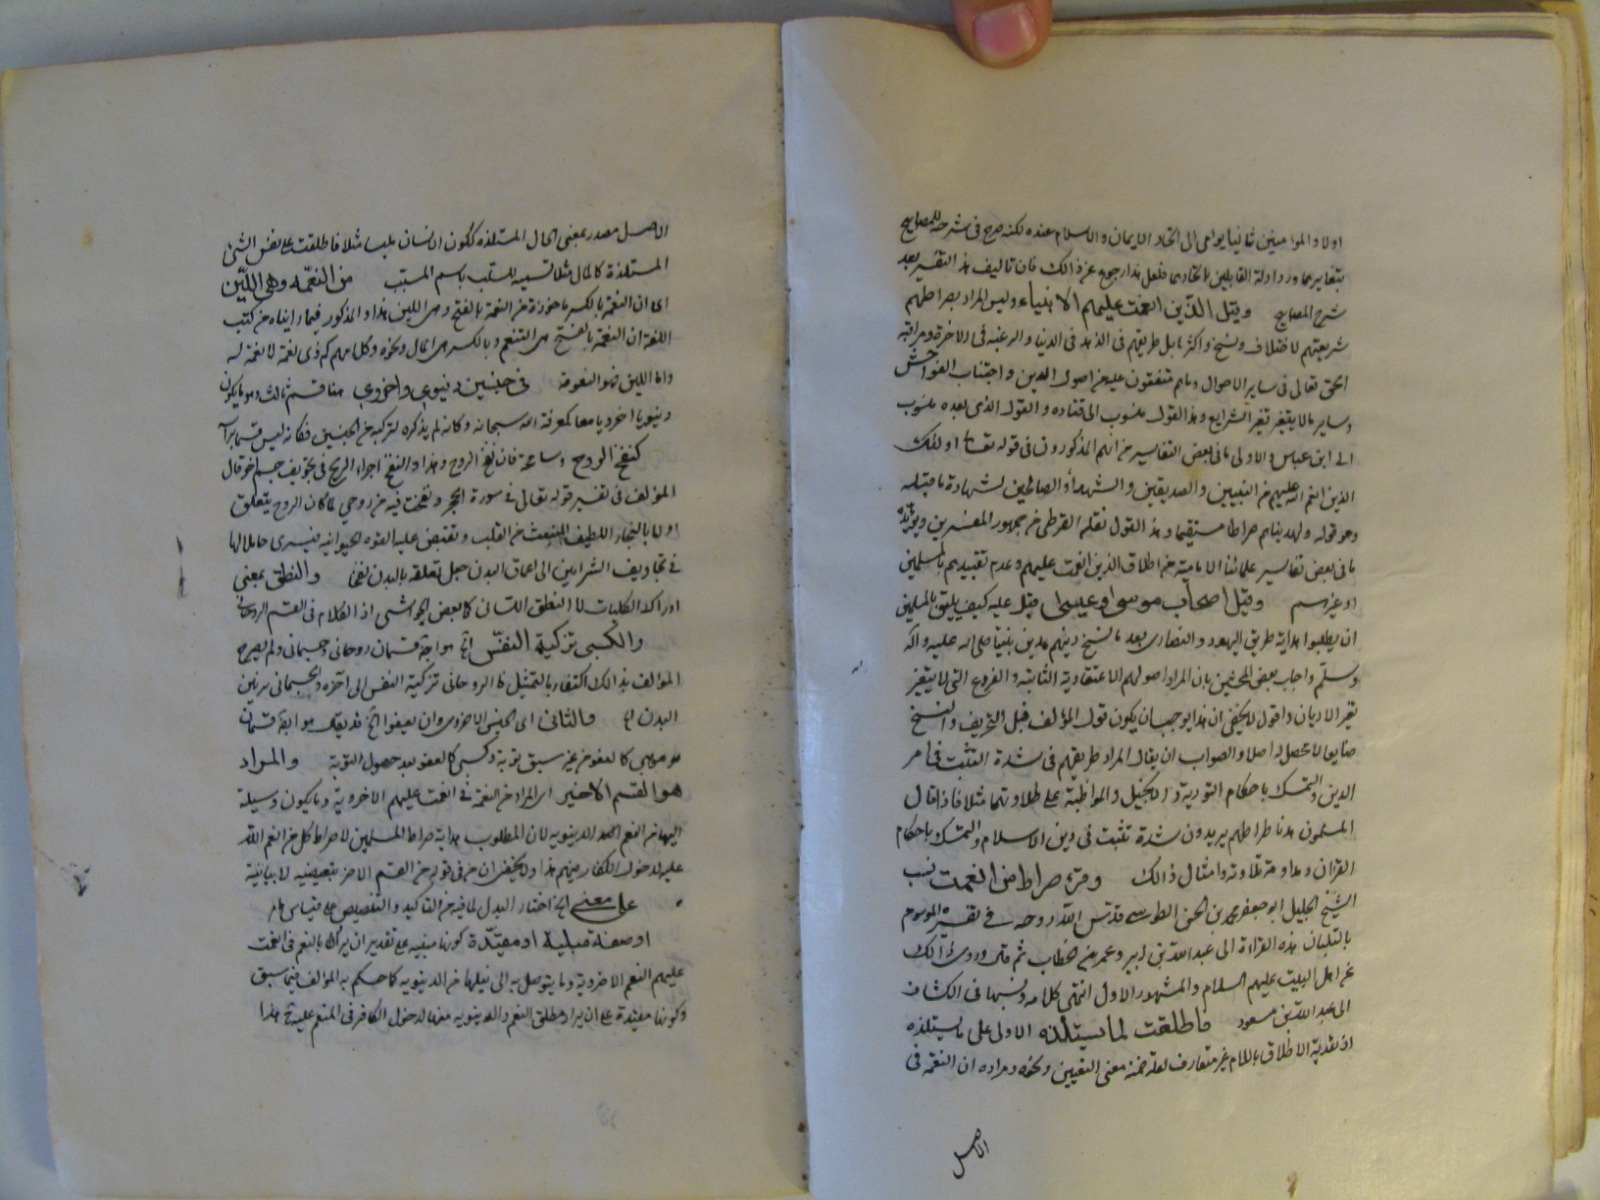 اولا والمؤمنين ثانيا يومى الى اتحاد الايمان والاسلام عنده لكنه صرح فى شرحه للمصابيح
بتغايرهما ورد ادلة القايلين باتحادهما فلعل هذا رجوع عن ذالك فان تاليف هذا التفسير بعد
شرح المصابيح وقيل الذين انعمت عليهم الانبياء وليس المراد بصراطهم
شريعتهم لاختلاف ونسخ اكثرها بل طريقهم فى الزهد فى الدنيا والرغبة فى الاخرة ومراقبة
الحق تعالى فى ساير الاحوال وما هم متفقون عليه من اصول الدين واجتناب الفواحش
وساير ما لا يتغير بتغير الشرايع وهذا القول منسوب الى قتاده والقول الذى بعده منسوب
الى ابن عباس والاولى ما فى بعض التفاسير من انهم المذكورون فى قوله تعالى اولئك
الذين انعم الله عليهم من النبيين والصديقين والشهداء والصالحين لشهادة ما قبله
وهو قوله ولهديناهم صراطا مستقيما وهذا القول نقله القرطبى عن جمهور المفسرين ويؤيده
ما فى بعض تفاسير علمائنا الامامية من اطلاق الذين انعمت عليهم وعدم تقييدهم بالمسلمين
او غيرهم وقيل اصحاب موسى وعيسى قيل عليه كيف يليق بالمسلمين
ان يطلبوا هداية طريق اليهود والنصارى بعد ما نسخ دينهم بدين نبينا صلى الله عليه واله
وسلم واجاب بعض المحشين بان المراد اصولهم الاعتقادية الثابتة والفروع التى لا يتغير
بتغير الاديان واقول لا يخفى ان هذا يوجب ان يكون قول المؤلف قبل التحريف والنسخ
ضايعا لا محصل له اصلا والصواب ان يقال المراد طريقهم فى شدة التثبت فى امر
الدين والتمسك باحكام التورية والانجيل والمواظبة على تلاوتهما مثلا فاذا قال
المسلمون اهدنا صراطهم يريدون شدة تثبت فى دين الاسلام والتمسك باحكام
القرآن ومداومة تلاوته وامثال ذالك وقرء صراط من انعمت نسب
الشيخ الجليل ابو جعفر محمد بن الحسن الطوسى قدس الله روحه فى تفسيره الموسوم
بالتبيان هذه القراءة الى عبد الله بن زبير وعمر بن الخطاب ثم قال وروى ذالك
عن اهل البيت عليهم السلام والمشهور الاول انتهى كلامه ونسبها فى الكشاف
الى عبد الله بن مسعود فاطلقت لما يستلذه الاولى على ما يستلذه
اذ تعدية الاطلاق باللام غير متعارف لعله ضمنه معنى التعيين ونحوه ومراده ان النعمة فى
الاصل
الاصل مصدر بمعنى الحال المستلذه ككون الانسان مثلا فاطلقت على نفس الشئ
المستلذة كالمال مثلا تسمية للسبب باسم المسبب من النعمه وهى اللين
اى ان النعمة بالكسر ماخوذة من النعمة بالفتح وهى اللين هذا والمذكور فيما رايناه من كتب
اللغة ان النعمة بالفتح هى التنعم وبالكسر هى المال ونحوه وكلامهم كم ذى نعمة لا نعمة له
واما اللين فهو النعومة فى جنسين دنيوى واخروى هنا قسم ثالث وهو ما يكون
دنيويا اخرويا معا كمعرفة الله سبحانه وكانه لم يذكره لتركبه من الجنسين فكانه ليس قسما براسه
كنفخ الروح مسامحة فان نفخ الروح وهذا والنفخ اجراء الريح فى تجويف جسم اخر قال
المؤلف فى تفسير قوله تعالى فى سورة الحجر ونفخت فيه من روحى لما كان الروح يتعلق
اولا بالبخار اللطيف المنبعث من القلب وتفيض عليه القوه الحيوانيه فيسرى حاملا لها
فى تجاويف الشرايين الى اعماق البدن جعل تعلقه بالبدن نفخا والنطق بمعنى
ادراك الكليات لا النطق اللسانى كما بعض الحواشى اذ الكلام فى القسم الروحانى
والكسبى تزكية النفس الخ هو ايضا قسمان روحانى وجسمانى ولم يصرح
المؤلف بذالك اكتفاء بالتمثيل فالروحانى تزكية النفس الى آخره والجسمانى تزيين
البدن الخ والثانى اى الجنس الاخروى وان يعفوا الخ قد يقال هو ايضا قسمان
موهبى كالعفو من غير سبق توبة وكسبى كالعفو بعد حصول التوبة والمراد
هو القسم الاخير اى المراد من النعمة فى انعمت عليهم الاخروية وما يكون وسيلة
اليها من النعم الدنيويه لان المطلوب هداية صراط المسلمين لا صراط كل من انعم الله
عليه لدخول الكفار فيهم هذا ولا يخفى ان من فى قوله من القسم الاخر تبعيضيه لا بيانية
على معنى الخ اختار البدل لما فيه من التاكيد والتفصيص على قياس ما مر
او صفة مبينة او مقيدة كونها مبينه على تقدير ان يراد بالنعم فى انعمت
عليهم النعم الاخروية وما يتوصل به الى نيلها من الدنيويه كما حكم به المؤلف فيما سبق
وكونها مقيدة على ان يراد مطلق النعم والدنيويه منها لدخول الكافر فى المنعم عليه ح هذا